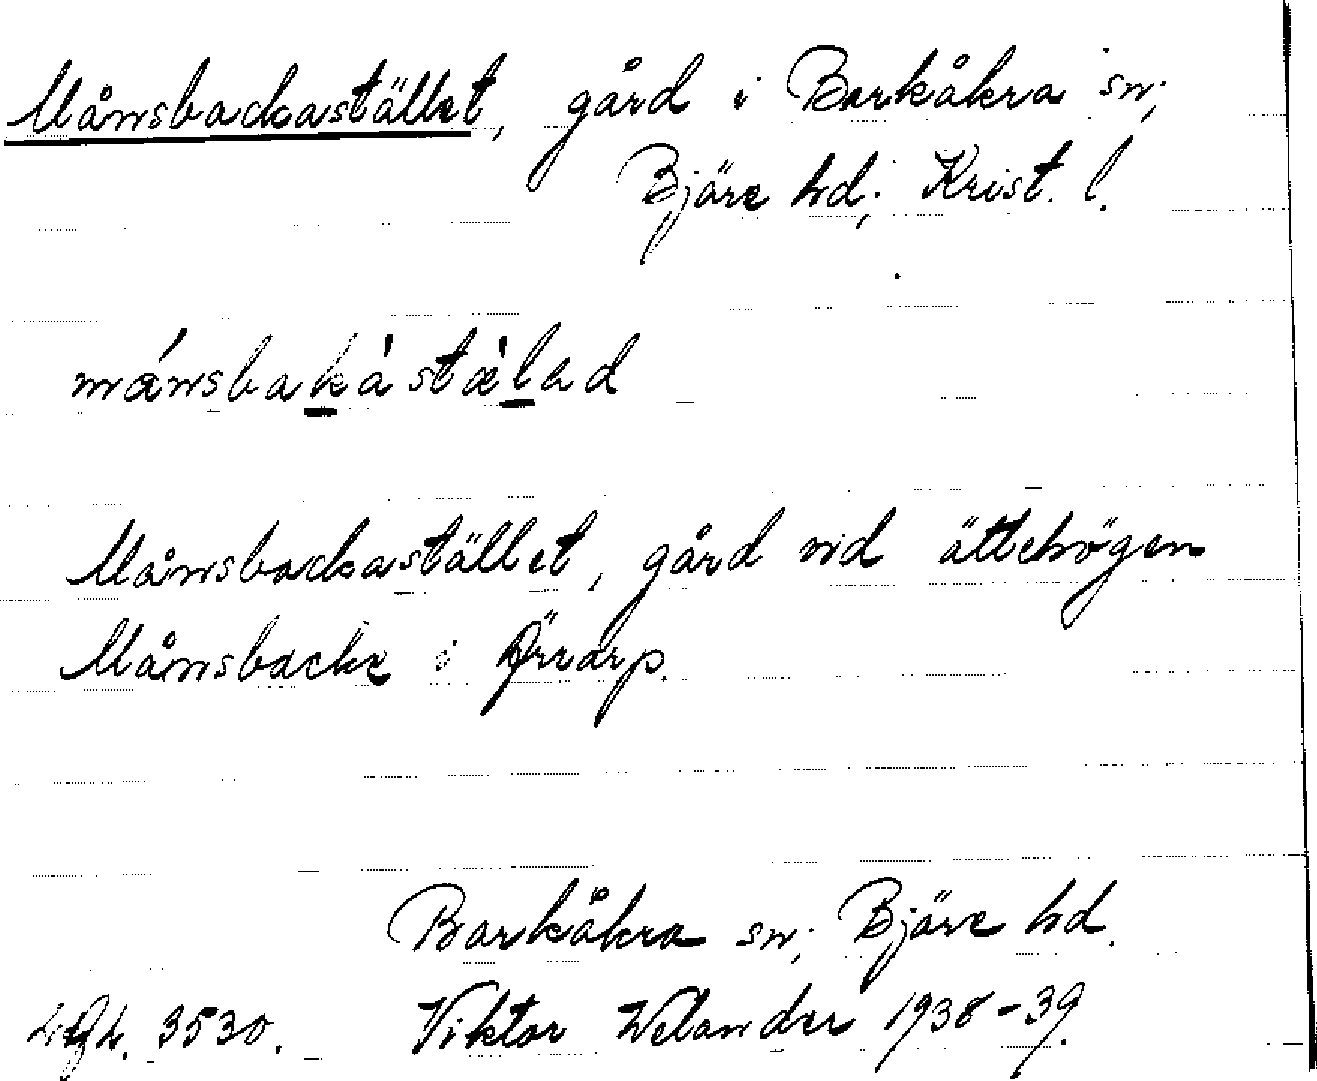 Månsbackastället, gård i Barkåkra sn;
Bjäre hd; Krist. l.
mánsbakàstæ̀lad
Månsbackastället, gård vid ättehögen
Månsbacke i Örrarp.
Barkåkra sn; Bjäre hd.
3530. Viktor Welander 1938-39.